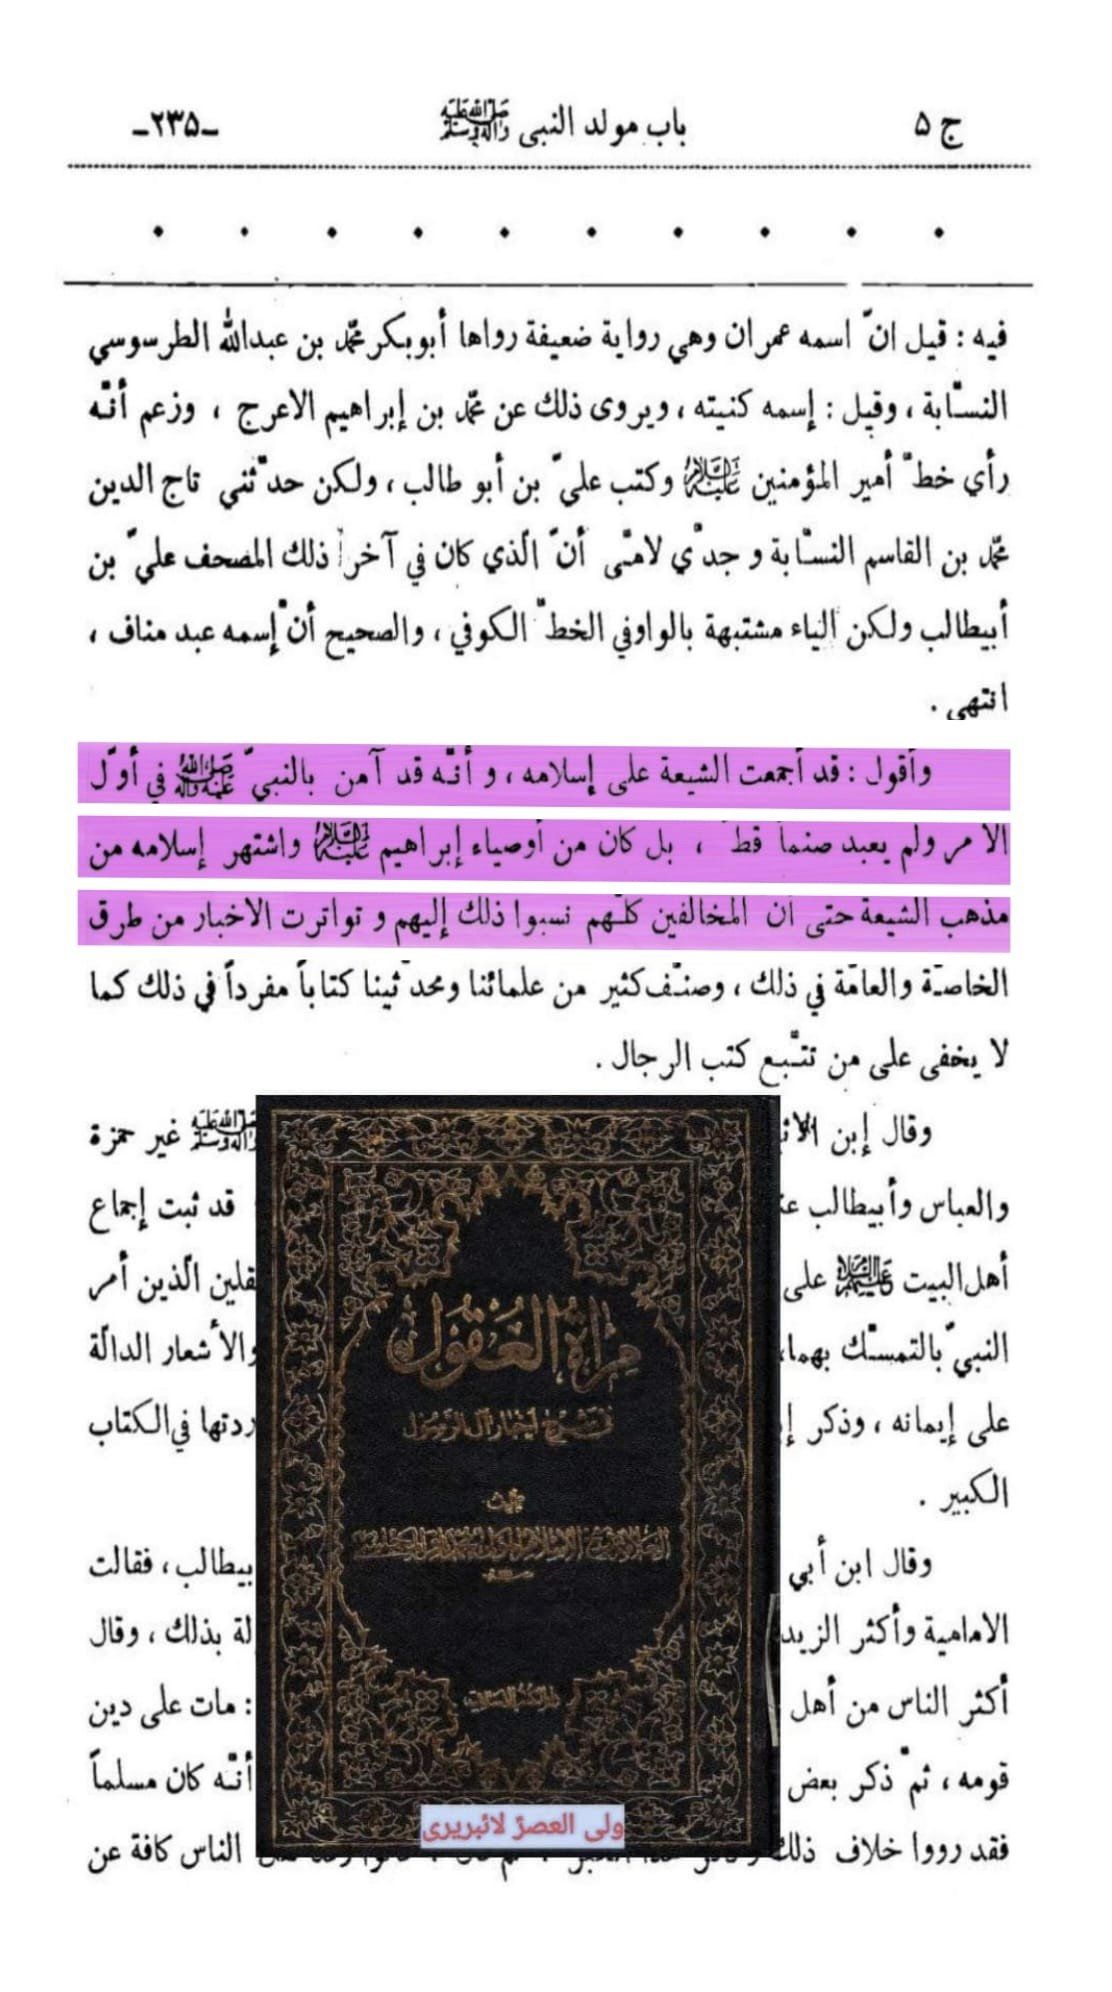 ج ۵
باب مولد النبى ﷺ
-۲۳۵-
فيه : قيل انّ اسمه عمران وهي رواية ضعيفة رواها أبوبكر محمّد بن عبدالله الطرسوسي
النسّابة ، وقيل : إسمه كنيته ، ويروى ذلك عن محمّد بن إبراهيم الاعرج ، وزعم أنّه
رأي خطّ أمير المؤمنين عليه السلام وكتب عليّ بن أبو طالب ، ولكن حدّثني تاج الدين
محمّد بن القاسم النسّابة و جدّي لامّى أنّ الّذي كان في آخر ذلك المصحف عليّ بن
أبيطالب ولكن الياء مشتبهة بالواوفي الخطّ الكوفي ، والصحيح أنّ إسمه عبد مناف ،
انتهى .
وأقول : قد أجمعت الشيعة على إسلامه ، و أنّه قد آمن بالنبيّ ﷺ في أوّل
الأمر ولم يعبد صنماً قطّ ، بل كان من أوصياء إبراهيم عليه السلام واشتهر إسلامه من
مذهب الشيعة حتى أن المخالفين كلّهم نسبوا ذلك إليهم و تواترت الأخبار من طرق
الخاصّة والعامّة في ذلك ، وصنّف كثير من علمائنا ومحدّثينا كتاباً مفرداً في ذلك كما
لا يخفى على من تتبّع كتب الرجال .
وقال إبن ﷺ غير حمزة
والعباس وأبيطالب قد ثبت إجماع
أهل البيت عليهم السلام على الّذين أمر
النبيّ بالتمسّك بهما، والأشعار الدالّة
على إيمانه ، وذكر في الكتاب
الكبير .
وقال ابن أبي فقالت
الامامية وأكثر بذلك ، وقال
أكثر الناس من أهل : مات على دين
قومه ، ثمّ ذكر بعض أنّه كان مسلماً
فقد رووا خلاف ذلك الناس كافة عن
مرآة العقول
في شرح أخبار آل الرسول
تأليف
دار الكتب الاسلامية
ولى العصرؑ لائبریری